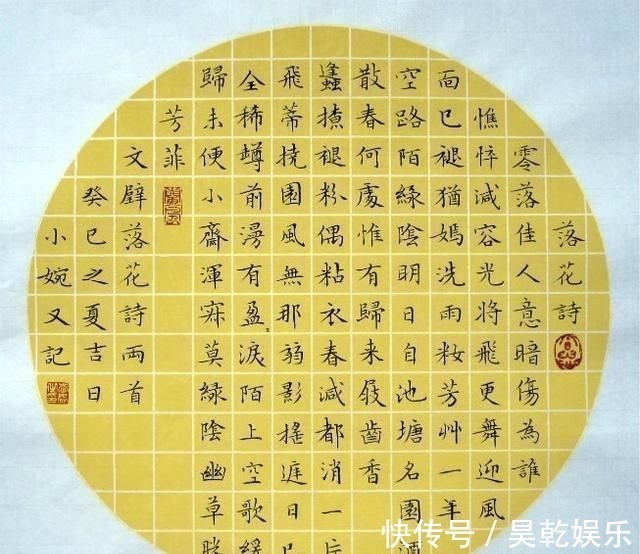 落花詩
零落佳人意暗傷為誰
憔悴減容光將飛更舞迎風
面已褪猶嫣洗雨粧芳艸一年
空路陌綠陰明日自池塘名園酒
散春何處惟有歸来屐齒香
蠭撩褪粉偶粘衣春減都消一片
飛蒂撓園風無那弱影搖庭日已
全稀罇前漫有盈〻淚陌上空歌緩
歸未便小齋渾寂莫綠陰幽草勝
芳菲
文璧落花詩兩首
癸巳之夏吉日
小婉又記
快传号／昊乾娱乐